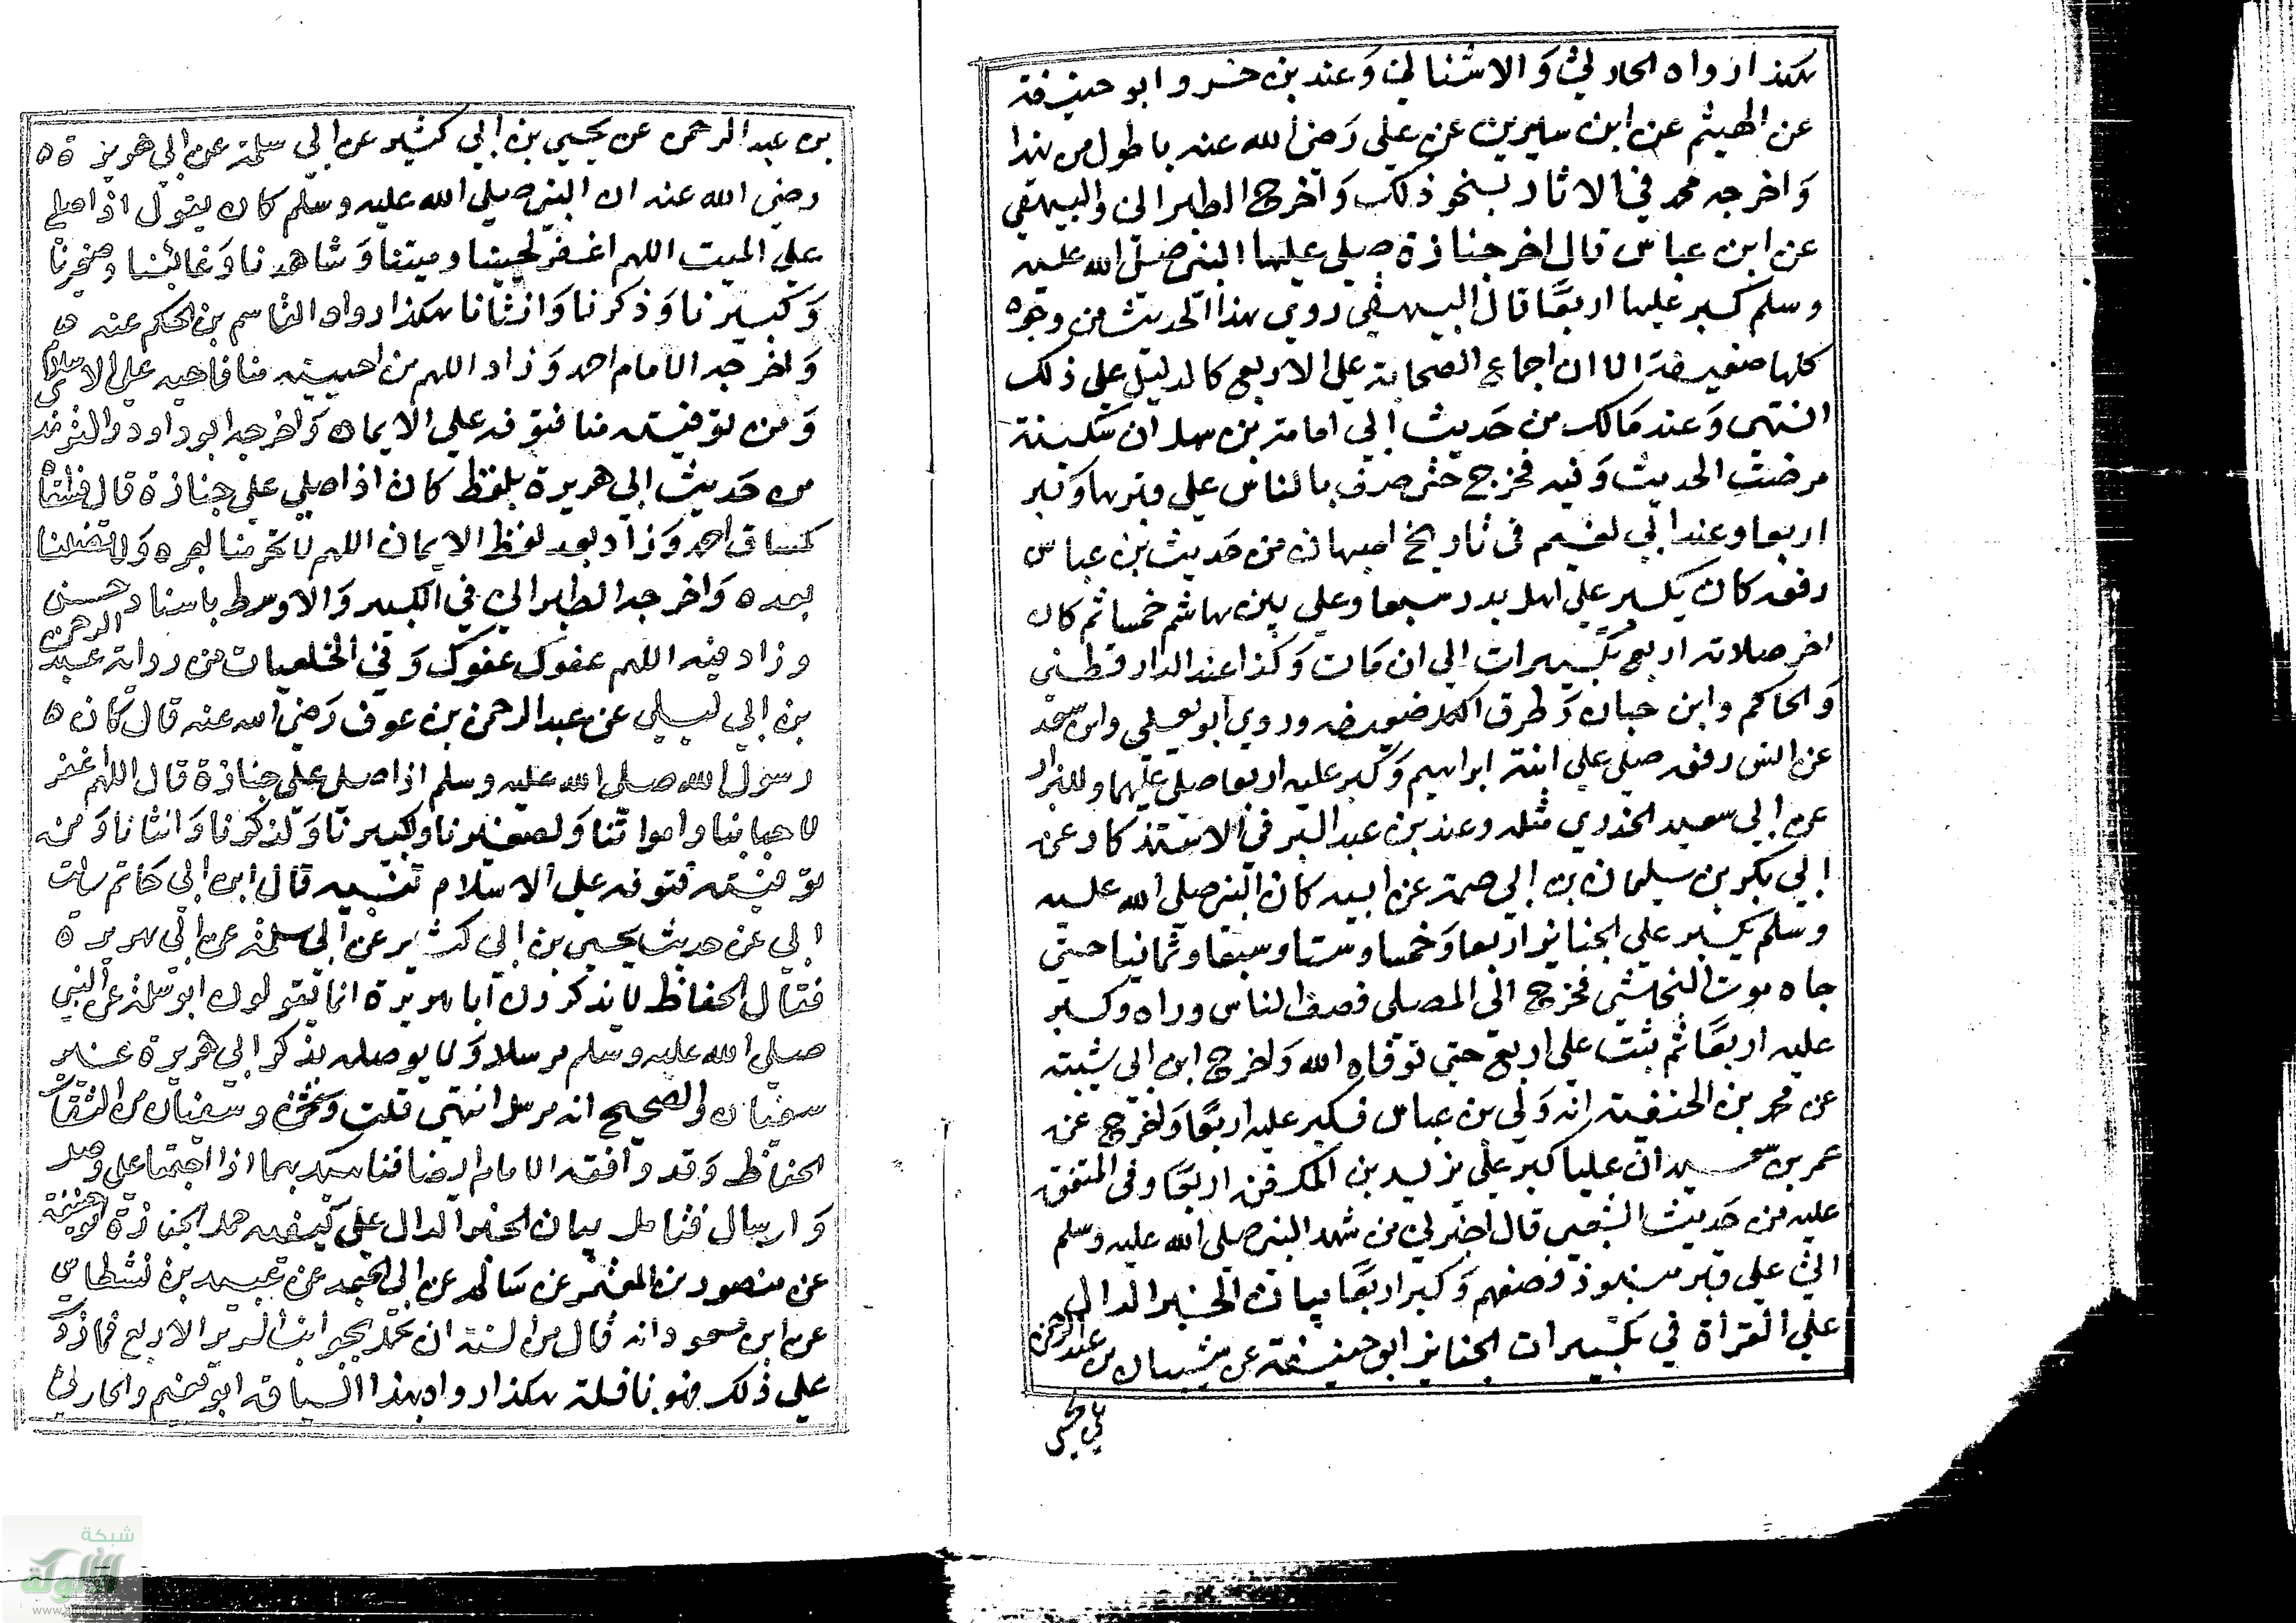 هكذا رواه الحارثي والاشناني وعند بن خسرو ابو حنيفة
عن الهيثم عن ابن سيرين عن علي رضي الله عنه باطول من هذا
واخرجه محمد في الاثار بنحو ذلك واخرج الطبراني والبيهقي
عن ابن عباس قال اخر جنازة صلي عليها النبي صلي الله عليه
وسلم كبر عليها اربعا قال البيهقي روي هذا الحديث من وجوه
كلها ضعيفة الا ان اجماع الصحابة علي الاربع كالدليل علي ذلك
انتهي وعند مالك من حديث ابي امامة بن سهل ان سكينة
مرضت الحديث وفيه فخرج حتي صف بالناس علي قبرها وكبر
اربعا وعند ابي نعيم في تاريخ اصبهان من حديث بن عباس
رفعه كان يكبر علي اهل بدر سبعا وعلي بني هاشم خمسا ثم كان
اخر صلاته اربع تكبيرات الي ان مات وكذا عند الدارقطني
والحاكم وابن حبان وطرق الكل ضعيفه وروي ابو يعلي وابن سعد
عن انس رفعه صلي علي ابنه ابراهيم وكبر عليه اربعا صلي عليهما وللبزار
عن ابي سعيد الخدري مثله وعند بن عبد البر في الاستذكار عن
ابي بكر بن سليمان بن ابي حثمة عن ابيه كان النبي صلي الله عليه
وسلم يكبر علي الجنايز اربعا وخمسا وستا وسبعا وثمانيا حتي
جاه موت النجاشي فخرج الي المصلي فصف الناس وراه وكبر
عليه اربعا ثم ثبت علي اربع حتي توفاه الله واخرج ابن ابي شيبة
عن محمد بن الحنفية انه ولي بن عباس فكبر عليه اربعا واخرج عن
عمر بن سعيد ان عليا كبر علي يزيد بن المكفف اربعا وفي المتفق
عليه من حديث الشعبي قال اخبرني من شهد النبي صلي الله عليه وسلم
اتي علي قبر منبوذ فصفهم وكبر اربعا بيان الخبر الدال
علي القرأة في تكبيرات الجنايز ابو حنيفة عن شيبان بن عبد الرحمن
عن يحيى
بن عبد الرحمن عن يحيي بن ابي كثير عن ابي سلمة عن ابي هريرة
رضي الله عنه ان النبي صلي الله عليه وسلم كان يقول اذا صلي
علي الميت اللهم اغفر لحينا وميتنا وشاهدنا وغائبنا وصغيرنا
وكبيرنا وذكرنا وانثانا هكذا رواه القاسم بن الحكم عنه
واخرجه الامام احمد وزاد اللهم من احييته منا فاحيه علي الاسلام
ومن توفيته منا فتوفه علي الايمان واخرجه ابو داود والترمذي
من حديث ابي هريرة بلفظ كان اذا صلي علي جنازة قال فساقا
كسياق احمد وزاد بعد لفظ الايمان اللهم لا تحرمنا اجره ولا تضلنا
بعده واخرجه الطبراني في الكبير والاوسط باسناد حسن
وزاد فيه اللهم عفوك عفوك وفي الخلعيات من رواية عبد الرحمن
بن ابي ليلي عن عبد الرحمن بن عوف رضي الله عنه قال كان
رسول الله صلي الله عليه وسلم اذا صلي علي جنازة قال اللهم اغفر
لاحيائنا وامواتنا ولصغيرنا وكبيرنا ولذكرنا وانثانا ومن
توفيته فتوفه علي الاسلام تنبيه قال ابن ابي حاتم سالت
ابي عن حديث يحيي بن ابي كثير عن ابي سلمة عن ابي هريرة
فقال الحفاظ لا يذكرون ابا هريرة انما يقولون ابو سلمة عن النبي
صلي الله عليه وسلم مرسلا ولا يوصله بذكر ابي هريرة غير
سفيان والصحيح انه مرسل انتهي قلت وسفيان من الثقات
الحفاظ وقد وافقه الامام ايضا فناهيك بهما اذا اجتمعا علي وصل
وارسال فتامل بيان الخبر الدال علي كيفيه حمل الجنازة ابو حنيفة
عن منصور بن المعتمر عن سالم عن ابي الجعد عن عبيد بن نسطاس
عن ابن مسعود انه قال من السنة ان تحمل بجوانب السرير الاربع فما زدت
علي ذلك فهو نافلة هكذا رواه بهذا السياق ابو نعيم والحارثي
شبكة
الألوكة